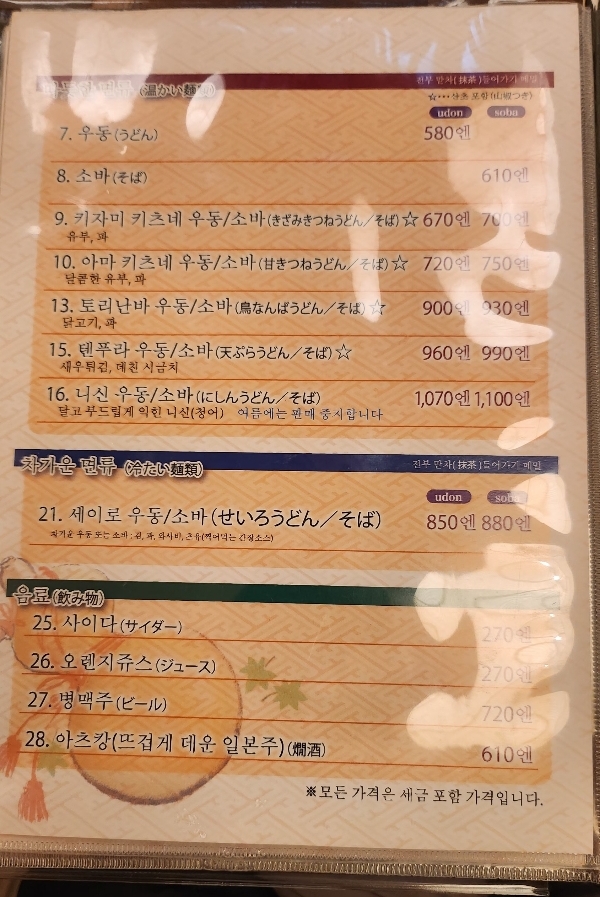 면류 (温かい麺類) 전부 말차(抹茶)들어가기 메밀
☆・・・산초 포함 (山椒つき)
udon soba
7. 우동(うどん) 580엔
8. 소바(そば) 610엔
9. 키자미 키츠네 우동/소바(きざみきつねうどん／そば)☆ 670엔 700엔
유부, 파
10. 아마 키츠네 우동/소바(甘きつねうどん／そば)☆ 720엔 750엔
달콤한 유부, 파
13. 토리난바 우동/소바(鳥なんばうどん／そば)☆ 900엔 930엔
닭고기, 파
15. 텐푸라 우동/소바(天ぷらうどん／そば)☆ 960엔 990엔
새우튀김, 데친 시금치
16. 니신 우동/소바(にしんうどん／そば) 1,070엔 1,100엔
달고 부드럽게 익힌 니신(청어) 여름에는 판매 중시합니다
차가운 면류 (冷たい麺類) 전부 말차(抹茶)들어가기 메밀
udon soba
21. 세이로 우동/소바(せいろうどん／そば) 850엔 880엔
차가운 우동 또는 소바 : 김, 파, 와사비, 쯔유(찍어먹는 간장소스)
음료(飲み物)
25. 사이다(サイダー) 270엔
26. 오렌지쥬스(ジュース) 270엔
27. 병맥주(ビール) 720엔
28. 아츠캉(뜨겁게 데운 일본주)(燗酒) 610엔
※모든 가격은 세금 포함 가격입니다.